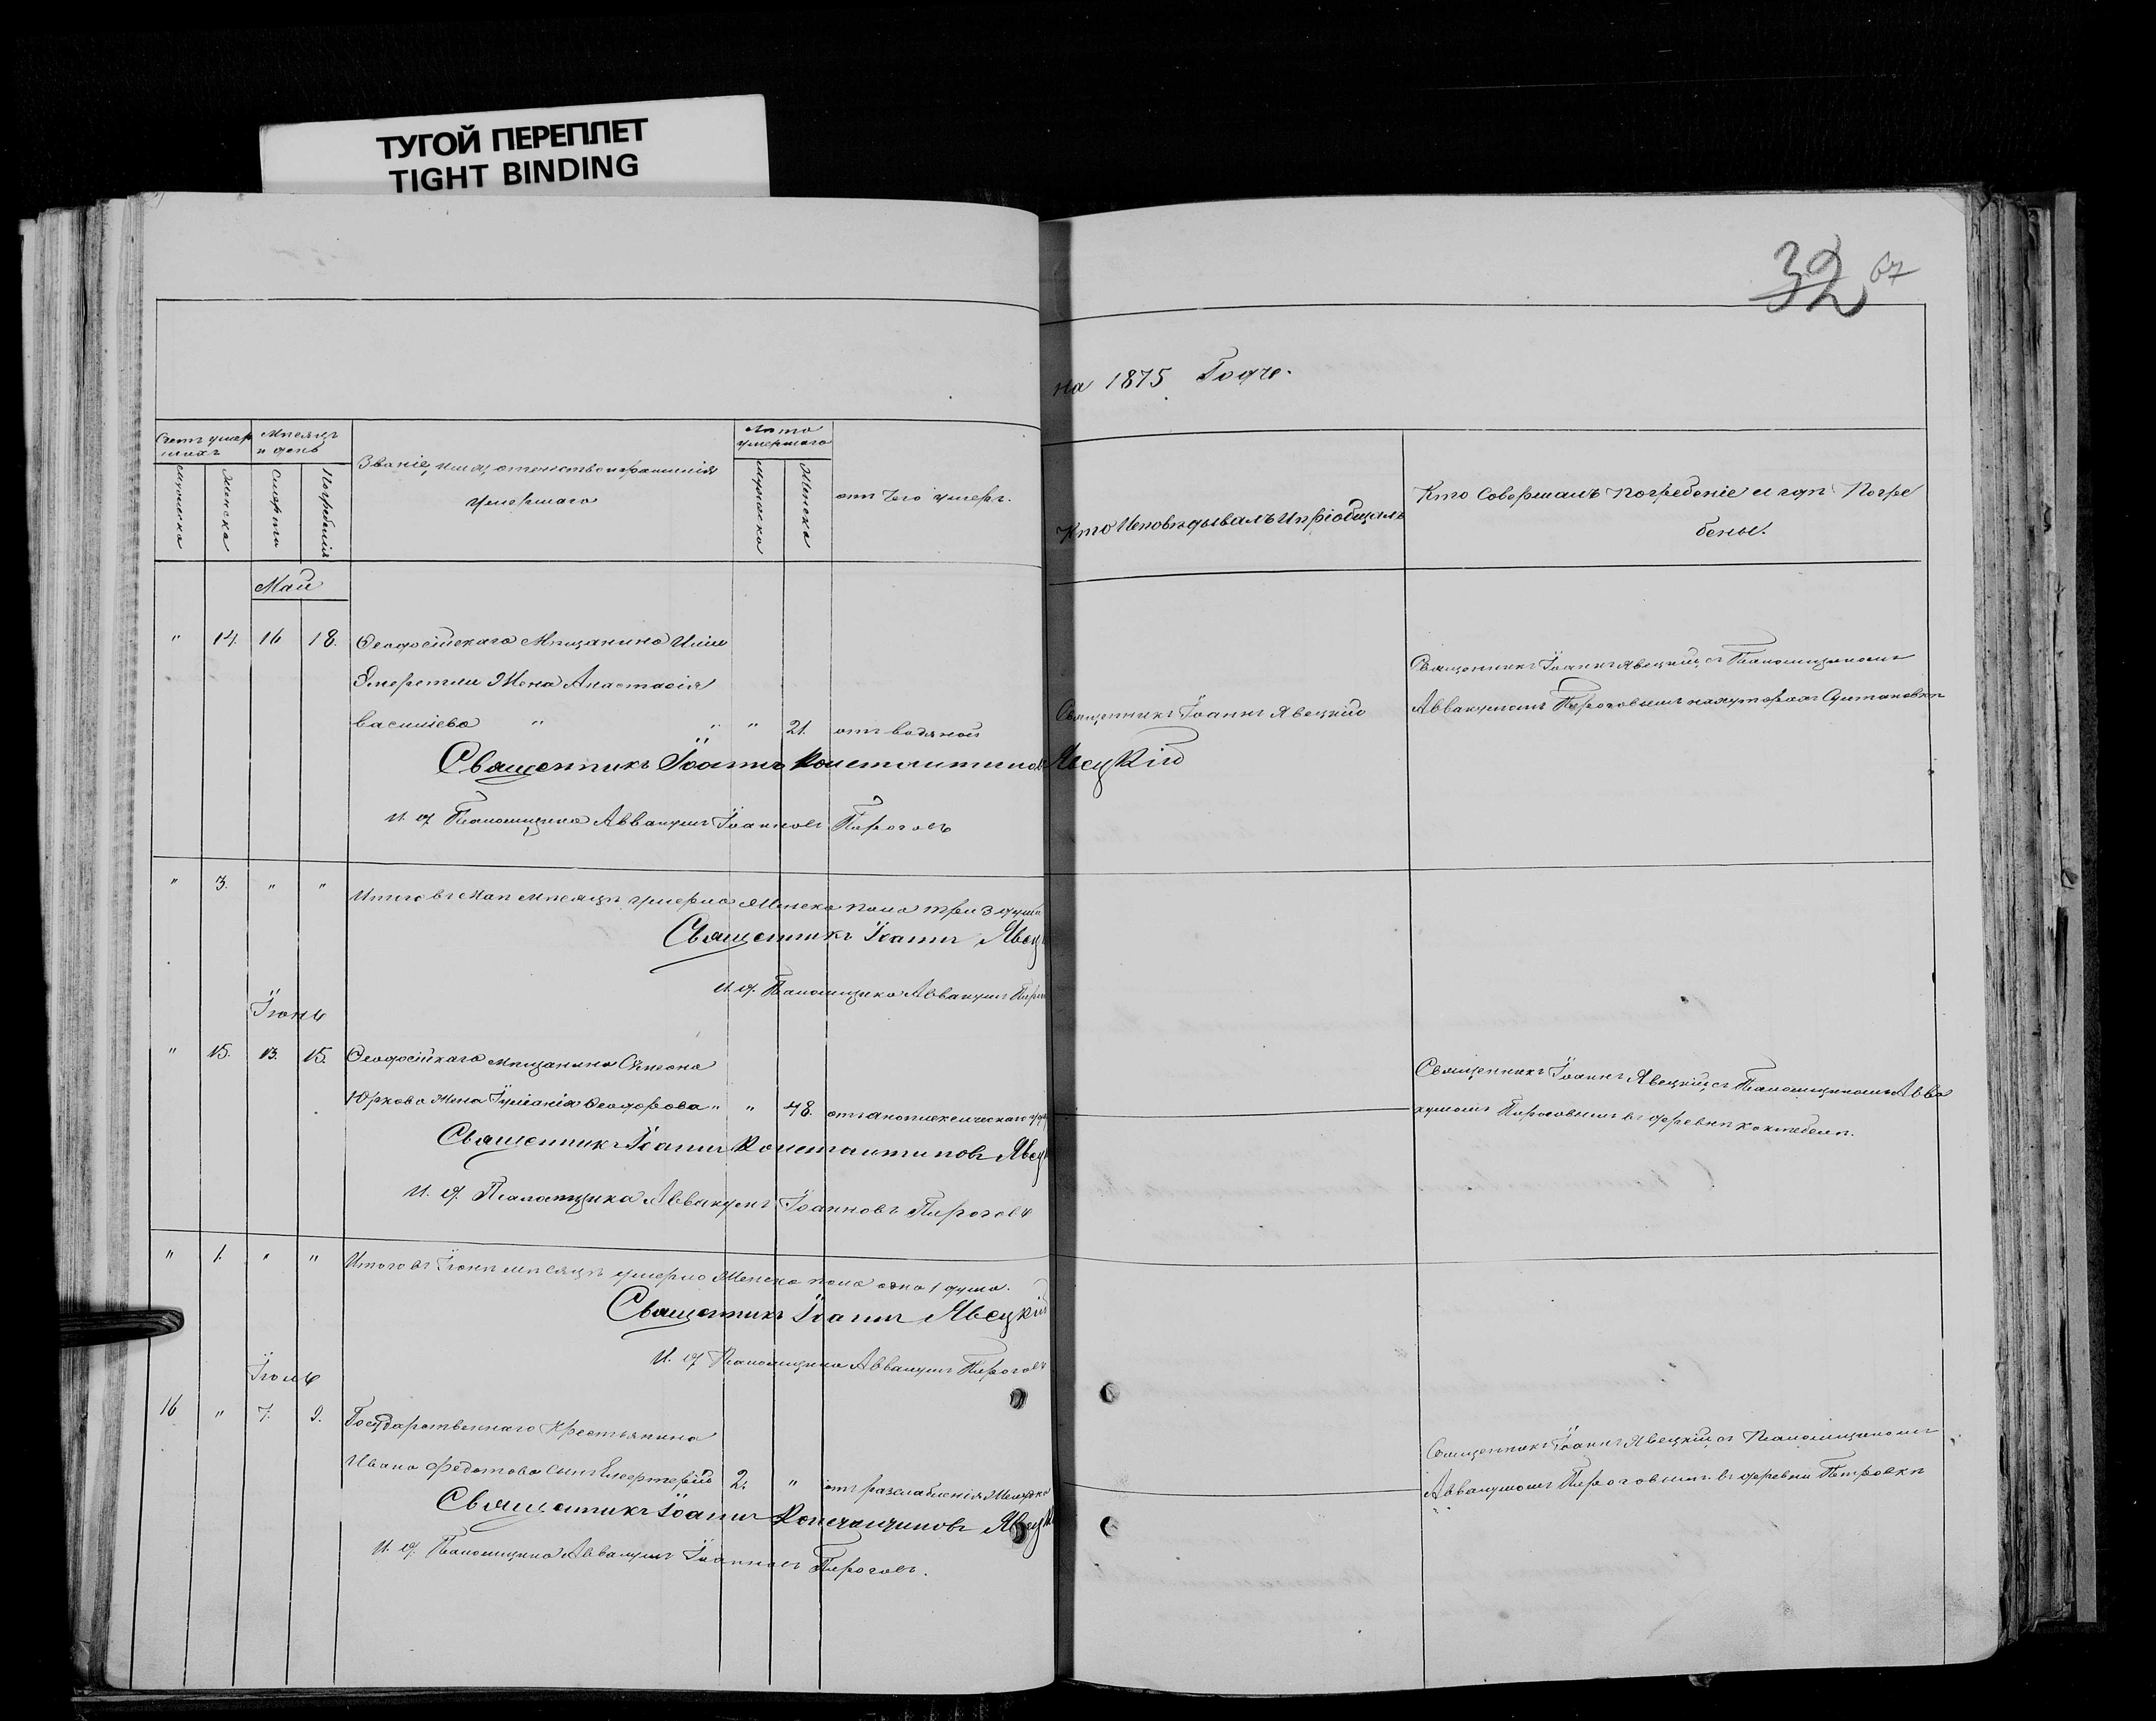 ТУГОЙ ПЕРЕПЛЕТ
TIGHT BINDING
32 67
на 1875 Годъ.
Счетъ умер
шихъ
Мѣсяцъ
и день
Званіе, имя, отечество и фамилія
умершаго
Лѣто
умершаго
отъ Чего умеръ.
Мужеска
Женска
Смерти
Погребенія
Мужеска
Женска
Кто Исповѣдывалъ И пріобщалъ
Кто Совершалъ Погребеніе и гдѣ Погре
бены.
Май
" 14. 16 18. Ѳеодосійскаго Мѣщанина
Жена Анастасія
Василіева " " " 21. отъ водяной
Священникъ Іоаннъ Явецкій
Священникъ Іоаннъ Явецкій съ Паномщикомъ
Аввакумомъ Пироговымъ на хуторѣ
Священникъ Іоаннъ Константиновъ Явецкій
И. д. Паномщика Аввакумъ Іоанновъ Пироговъ
" 3. " " Итого въ Маѣ мѣсяцѣ умерло Женска пола три 3 души
Священникъ Іоаннъ Явец
И. д. Паномщика Аввакумъ Пирог
Іюнь
" 15. 13. 15. Ѳеодосійскаго мѣщанина Симеона
Юркова Жена Іуліанія Ѳеодорова " " 48. отъ апоплексическаго уда
Священникъ Іоаннъ Явецкій съ Паномщикомъ Авва
кумомъ Пироговымъ въ деревнѣ Коктебелѣ.
Священникъ Іоаннъ Константиновъ Явец
И. д. Паномщика Аввакумъ Іоанновъ Пироговъ
" 1. " " Итого въ Іюнѣ мѣсяцѣ умерло Женска пола одна 1 душа.
Священникъ Іоаннъ Явецкій
И. д. Паномщика Аввакумъ Пироговъ
Іюль
16 " 7. 9. Государственнаго Крестьянина
Ивана Федотова сынъ Елефтерій 2. " отъ разслабленія Желудка
Священникъ Іоаннъ Явецкій съ Паномщикомъ
Аввакумомъ Пироговымъ въ деревни Петровкѣ
Священникъ Іоаннъ Константиновъ Явец
И. д. Паномщика Аввакумъ Іоанновъ Пироговъ.